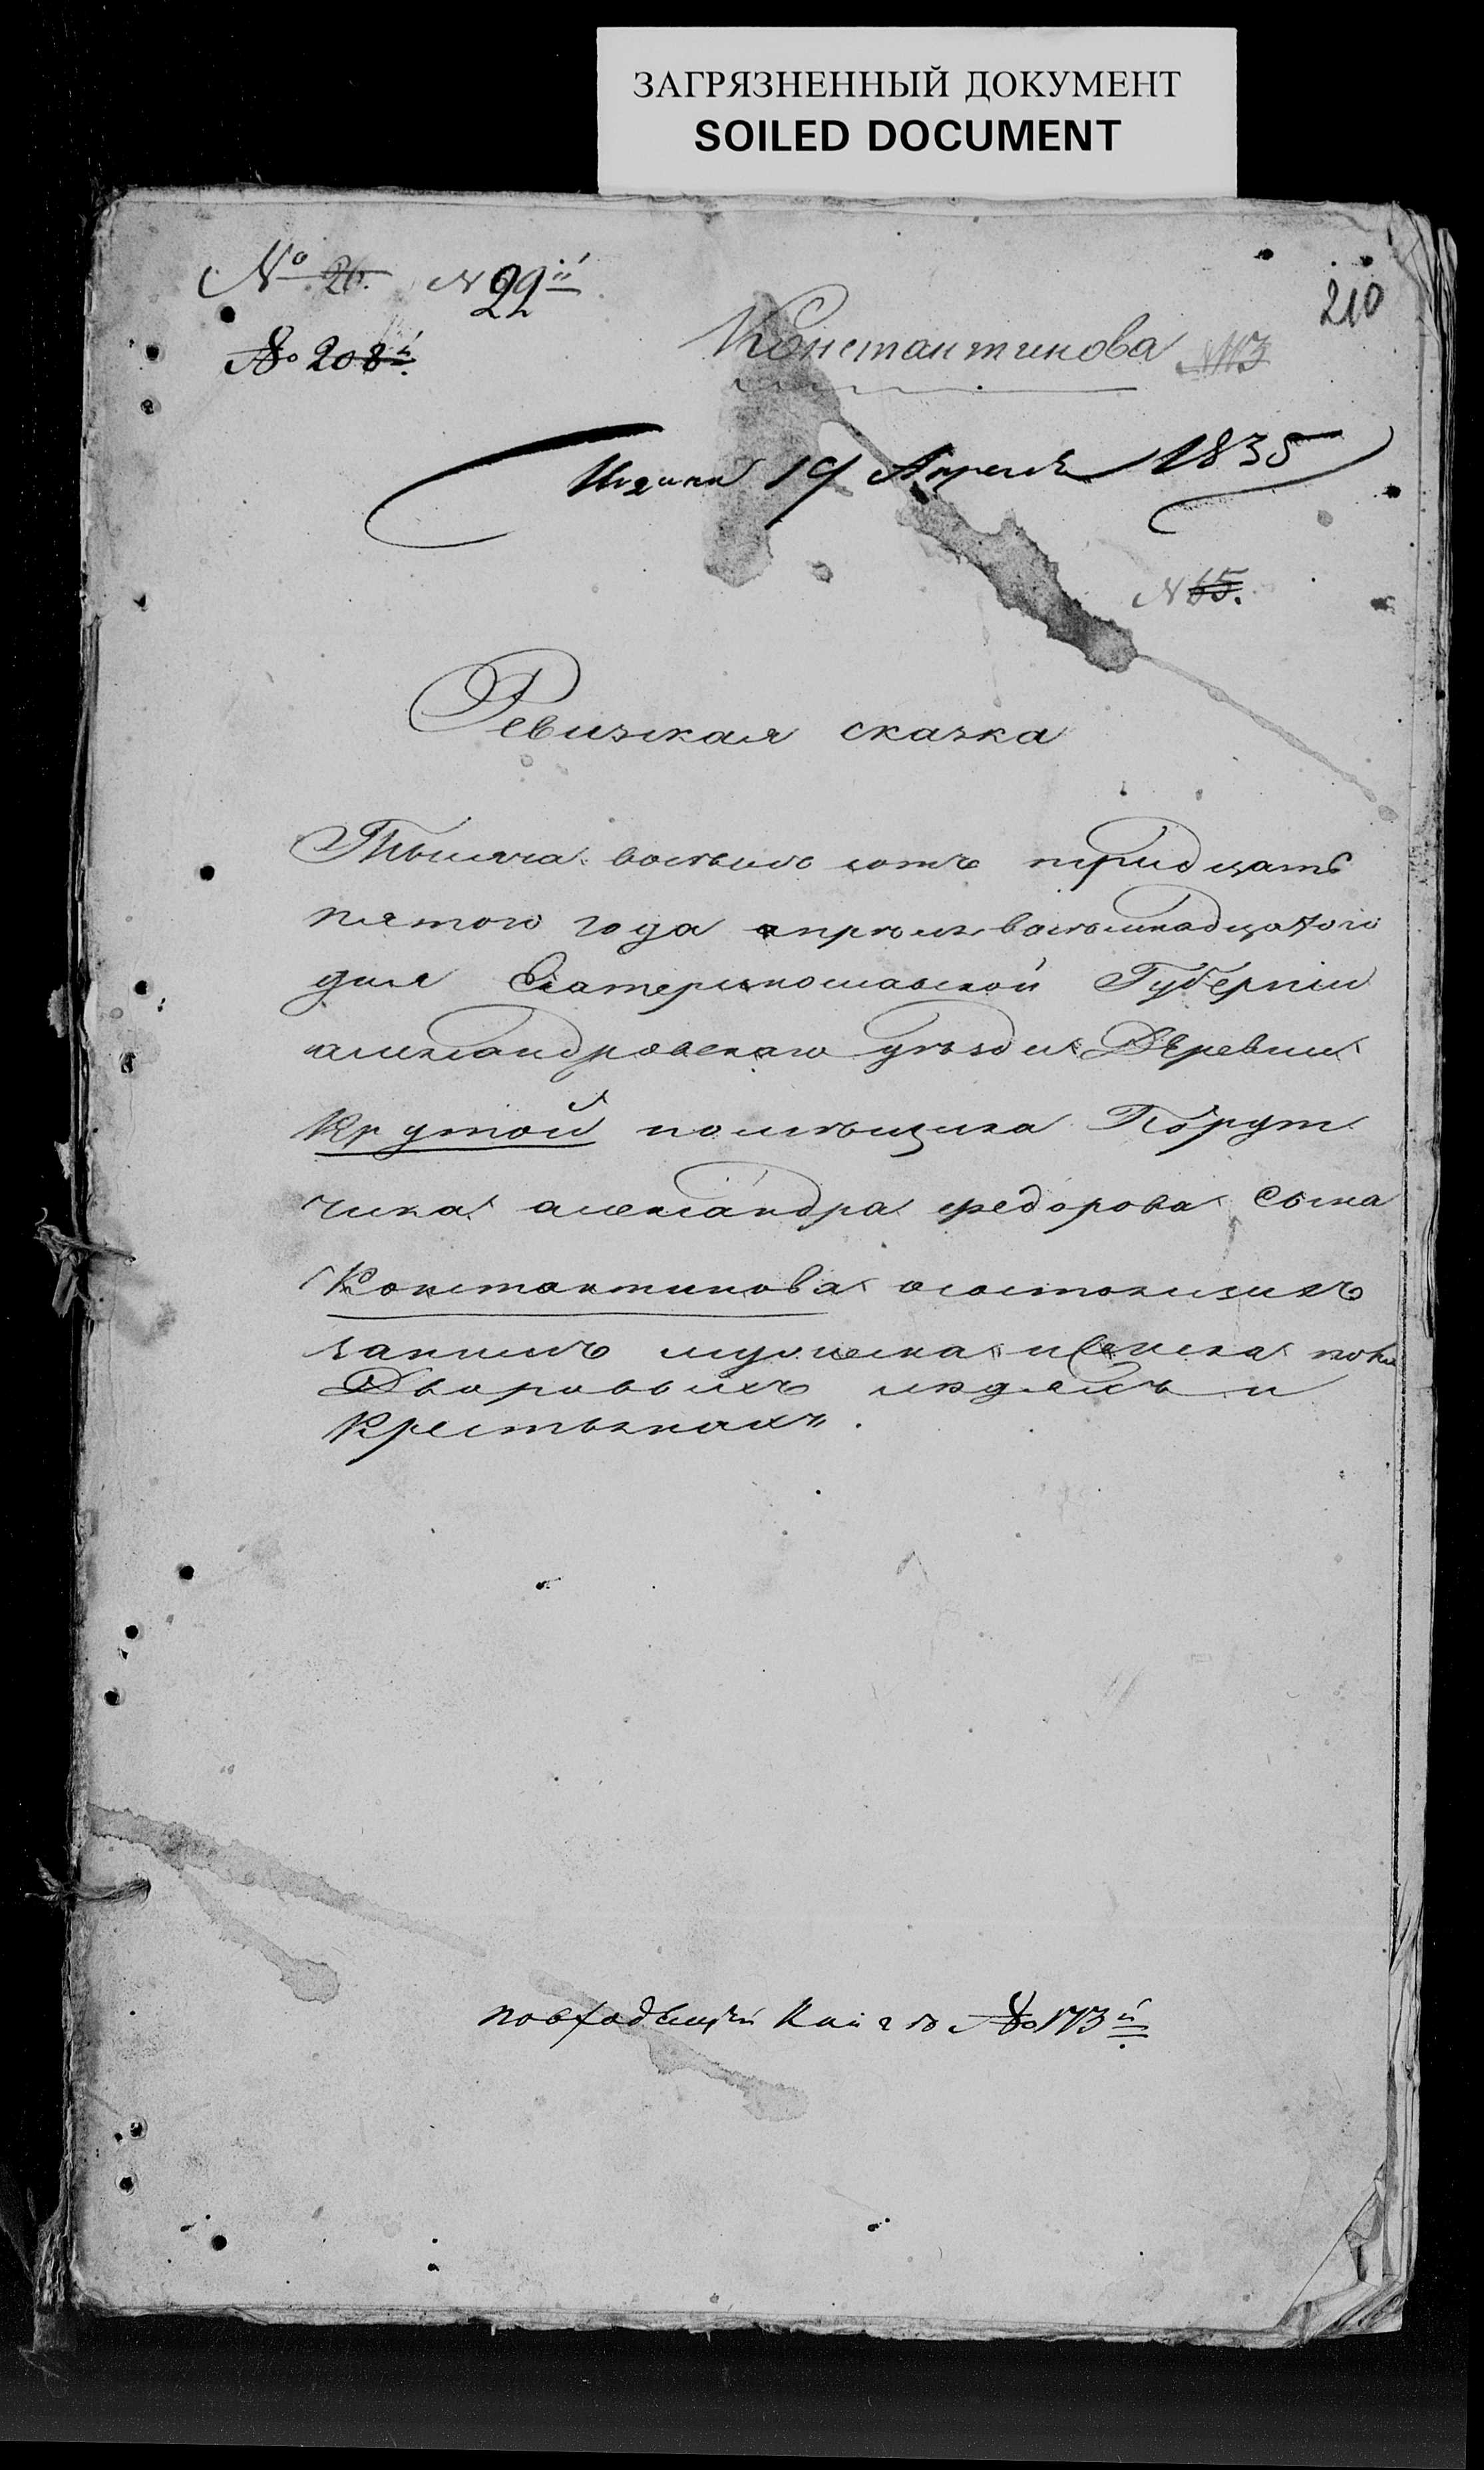 ЗАГРЯЗНЕННЫЙ ДОКУМЕНТ
SOILED DOCUMENT
№ 26. N 22й
210
№ 208й
Константинова N 113
19 Апреля 1835
N 65.
Ревизкая сказка
Тысяча восемь сотъ тридцать
пятого года апреля восемнадцатого
дня Екатеринославской Губерніи
александровскаго уѣзда Деревни
Крутой помѣщика Порут
чика александра федорова сына
Константинова состоящихъ
занимъ мужеска и женска пола
Дворовыхъ людехъ и
Крестьянахъ.
повходящей Книге № 173й